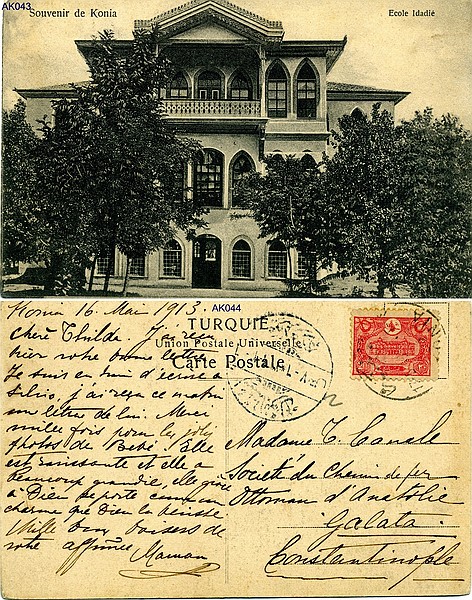 AK043
Souvenir de Konia
Ecole Idadié
AK044
Konia 16. Mai 1913.
TURQUIE
Union Postale Universelle
Carte Postale
chère Thilda J'ai
hier votre bonne lettre
Je suis en train d'écrire à
Silvio, j'ai reçu ce matin
une lettre de lui. Merci
mille fois pour les jolies
photos de Bebé. Elle
est ravissante et elle a
beaucoup grandie, elle
à Dieu se porte comme un
charme que Dieu la bénisse
Mille bons baisers de
votre affmée Maman
Madame T. Canale
Societé du Chemin de fer
Ottoman d'Anatolie
Galata
Constantinople